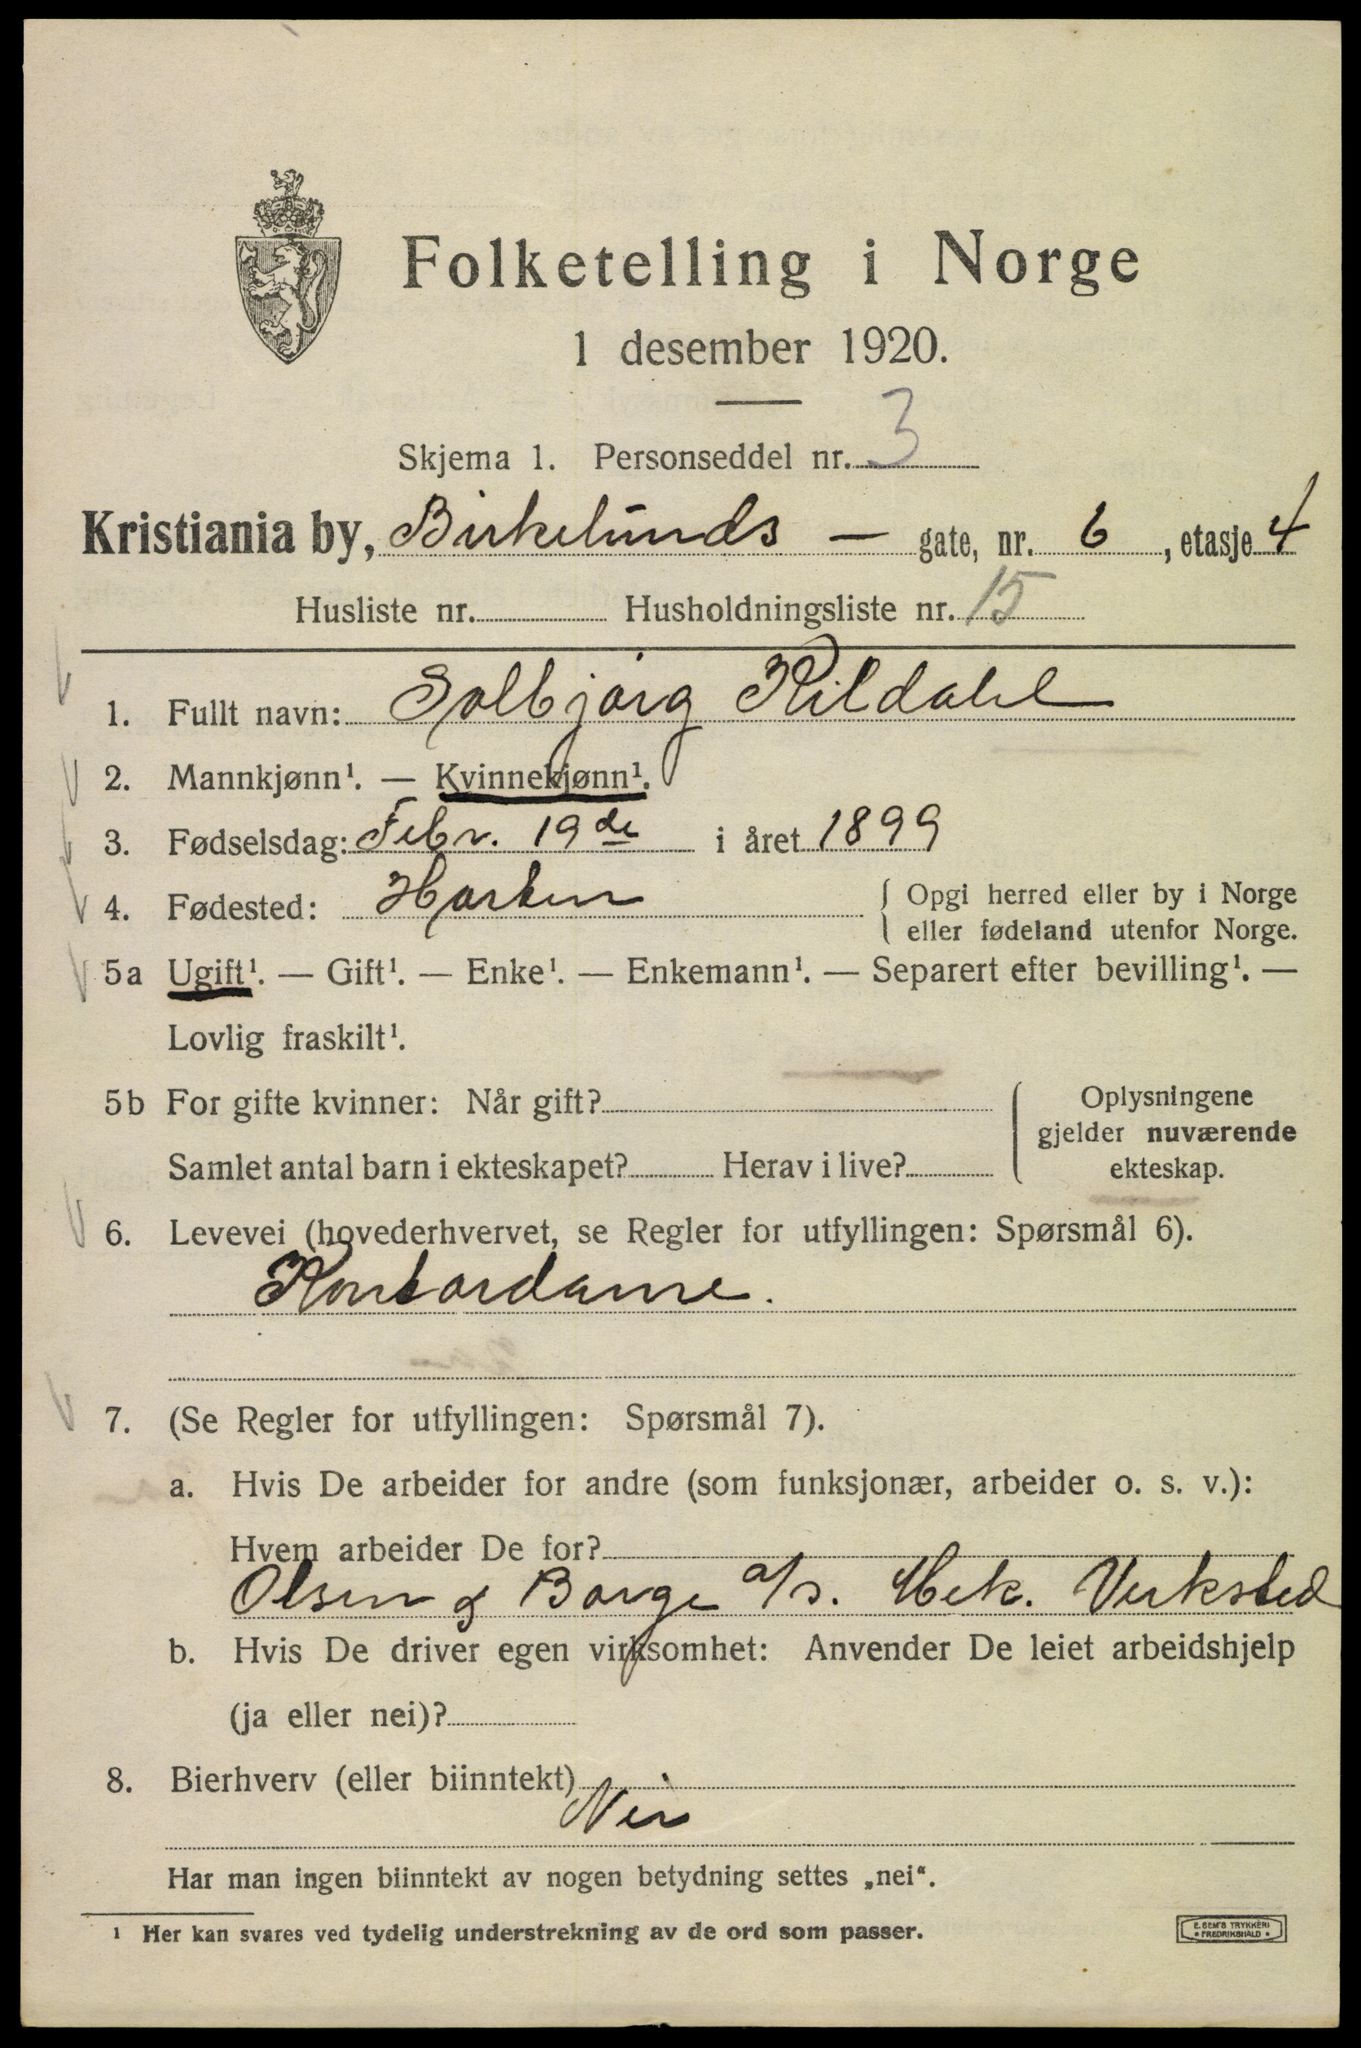 Folketelling i Norge
1 desember 1920.
Skjema 1. Personseddel nr. 3
Kristiania by, Birkelunds — gate, nr. 6, etasje 4
Husliste nr. Husholdningsliste nr. 15
1. Fullt navn: Solbjørg Kildahl
2. Mannkjønn¹. — Kvinnekjønn¹.
3. Fødselsdag: Febr. 19de i året 1899
4. Fødested: Horten { Opgi herred eller by i Norge
eller fødeland utenfor Norge.
5a Ugift¹. — Gift¹. — Enke¹. — Enkemann¹. — Separert efter bevilling¹. —
Lovlig fraskilt¹.
5b For gifte kvinner: Når gift? { Oplysningene
gjelder nuværende
Samlet antal barn i ekteskapet? Herav i live? ekteskap.
6. Levevei (hovederhvervet, se Regler for utfyllingen: Spørsmål 6).
Kontordame.
7. (Se Regler for utfyllingen: Spørsmål 7).
a. Hvis De arbeider for andre (som funksjonær, arbeider o. s. v.):
Hvem arbeider De for?
Olsen & Borge a/s. Mek. Verksted
b. Hvis De driver egen virksomhet: Anvender De leiet arbeidshjelp
(ja eller nei)?
8. Bierhverv (eller biinntekt)
Nei
Har man ingen biinntekt av nogen betydning settes „nei“.
¹ Her kan svares ved tydelig understrekning av de ord som passer.
E. SEM'S TRYKKERI
* FREDRIKSHALD *